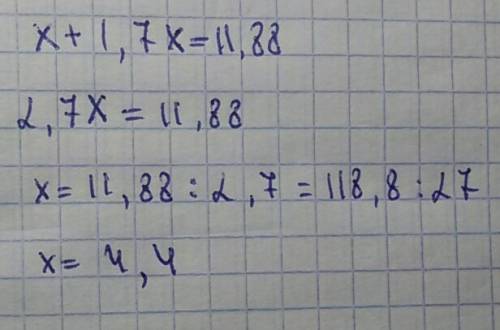 x + 1,7x = 11,88
2,7x = 11,88
x = 11,88 : 2,7 = 118,8 : 27
x = 4,4